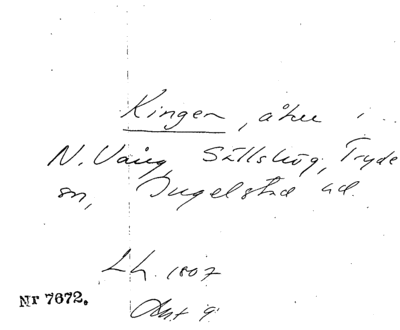 Kingen, åker i
N. Vång, Sällshög, Tryde
sn, Ingelstad hd.
Lh. 1807
Nr 7672. Akt 9.